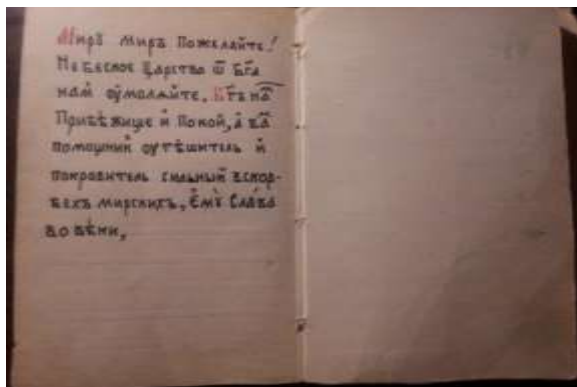 Миръ миръ Пожелайте!
Небесное Царство ѿ Бг҃а
нам оумоляйте, Бг҃ъ на҃
Прибѣжище и Покой, а ва҃
помощник оутѣшитель и
покровитель сильный вскор-
бехъ мирскихъ, Ему Слава
во вѣки,